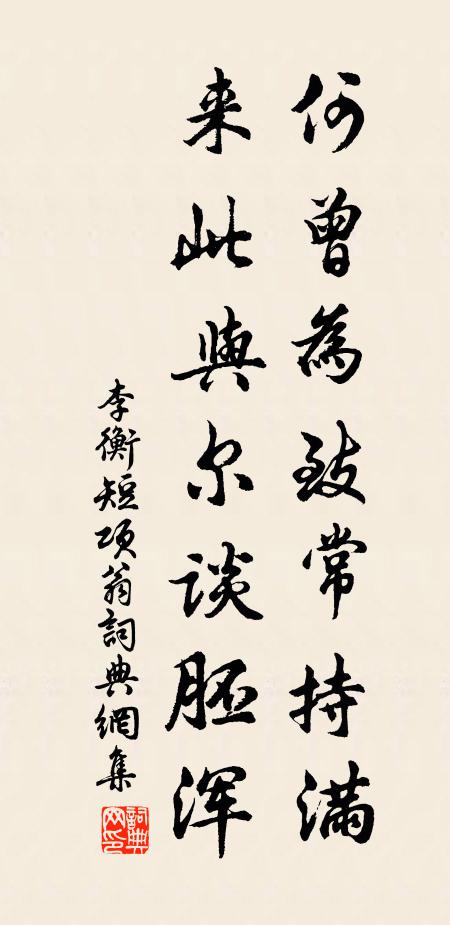 何曾為致常持滿
来此與尔谈胚浑
李衡短項翁詞典網集
詞典網印